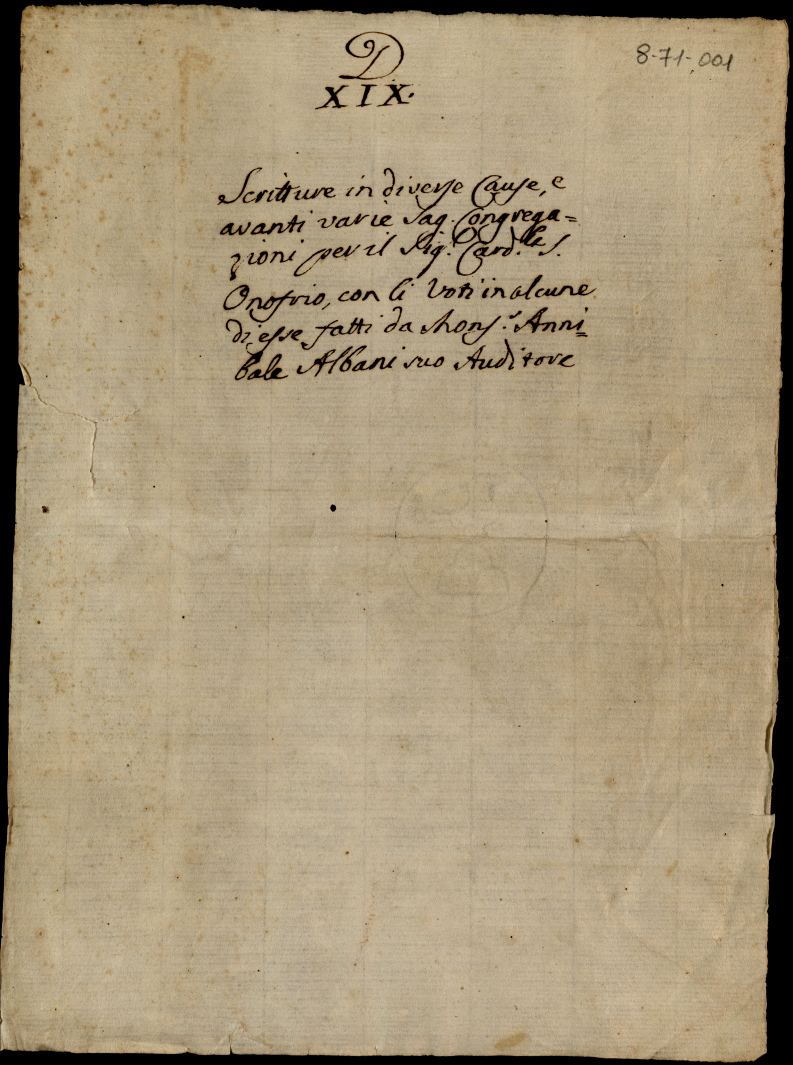 8-71-001
D
XIX.
Scritture in diverse Cause, e
avanti varie Sag. Congrega=
zioni per il Sig.r Card.le S.
Onofrio, con li Voti in alcune
di esse fatti da Mons.r Anni=
bale Albani suo Auditore